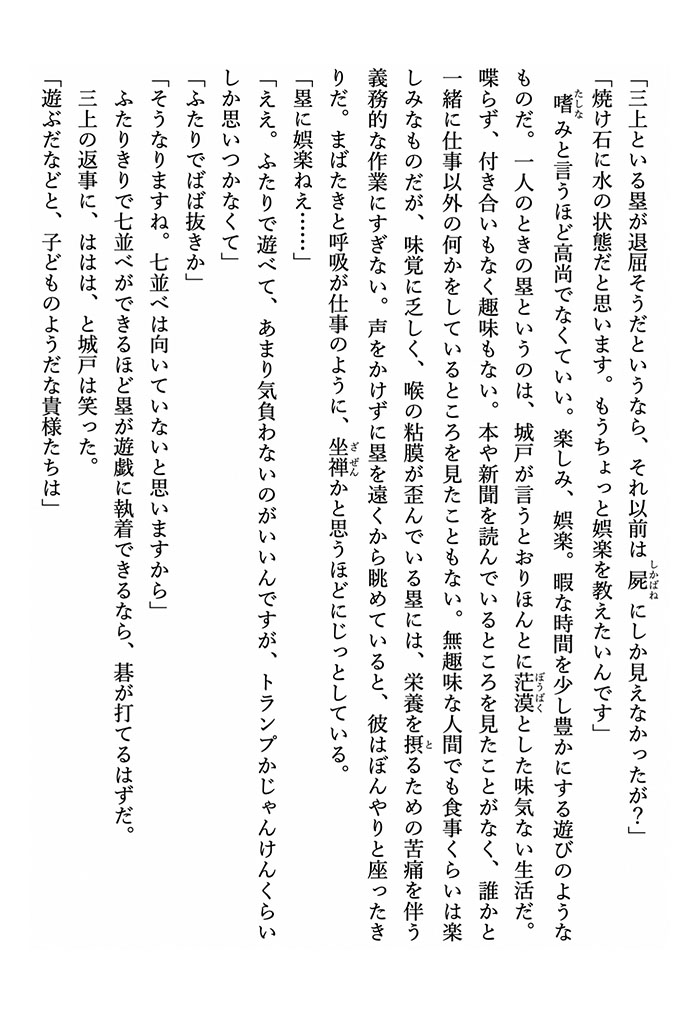 「三上といる塁が退屈そうだというなら、それ以前は屍にしか見えなかったが？」
「焼け石に水の状態だと思います。もうちょっと娯楽を教えたいんです」
　嗜みと言うほど高尚でなくていい。楽しみ、娯楽。暇な時間を少し豊かにする遊びのような
ものだ。一人のときの塁というのは、城戸が言うとおりほんとに茫漠とした味気ない生活だ。
喋らず、付き合いもなく趣味もない。本や新聞を読んでいるところを見たことがなく、誰かと
一緒に仕事以外の何かをしているところを見たこともない。無趣味な人間でも食事くらいは楽
しみなものだが、味覚に乏しく、喉の粘膜が歪んでいる塁には、栄養を摂るための苦痛を伴う
義務的な作業にすぎない。声をかけずに塁を遠くから眺めていると、彼はぼんやりと座ったき
りだ。まばたきと呼吸が仕事のように、坐禅かと思うほどにじっとしている。
「塁に娯楽ねえ……」
「ええ。ふたりで遊べて、あまり気負わないのがいいんですが、トランプかじゃんけんくらい
しか思いつかなくて」
「ふたりでばば抜きか」
「そうなりますね。七並べは向いていないと思いますから」
　ふたりきりで七並べができるほど塁が遊戯に執着できるなら、碁が打てるはずだ。
　三上の返事に、ははは、と城戸は笑った。
「遊ぶだなどと、子どものようだな貴様たちは」